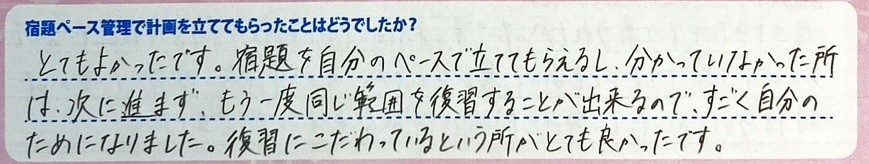 宿題ペース管理で計画を立ててもらったことはどうでしたか？
とてもよかったです。宿題を自分のペースで立ててもらえるし、分かっていなかった所
は、次に進まず、もう一度同じ範囲を復習することが出来るので、すごく自分の
ためになりました。復習にこだわっているという所がとても良かったです。